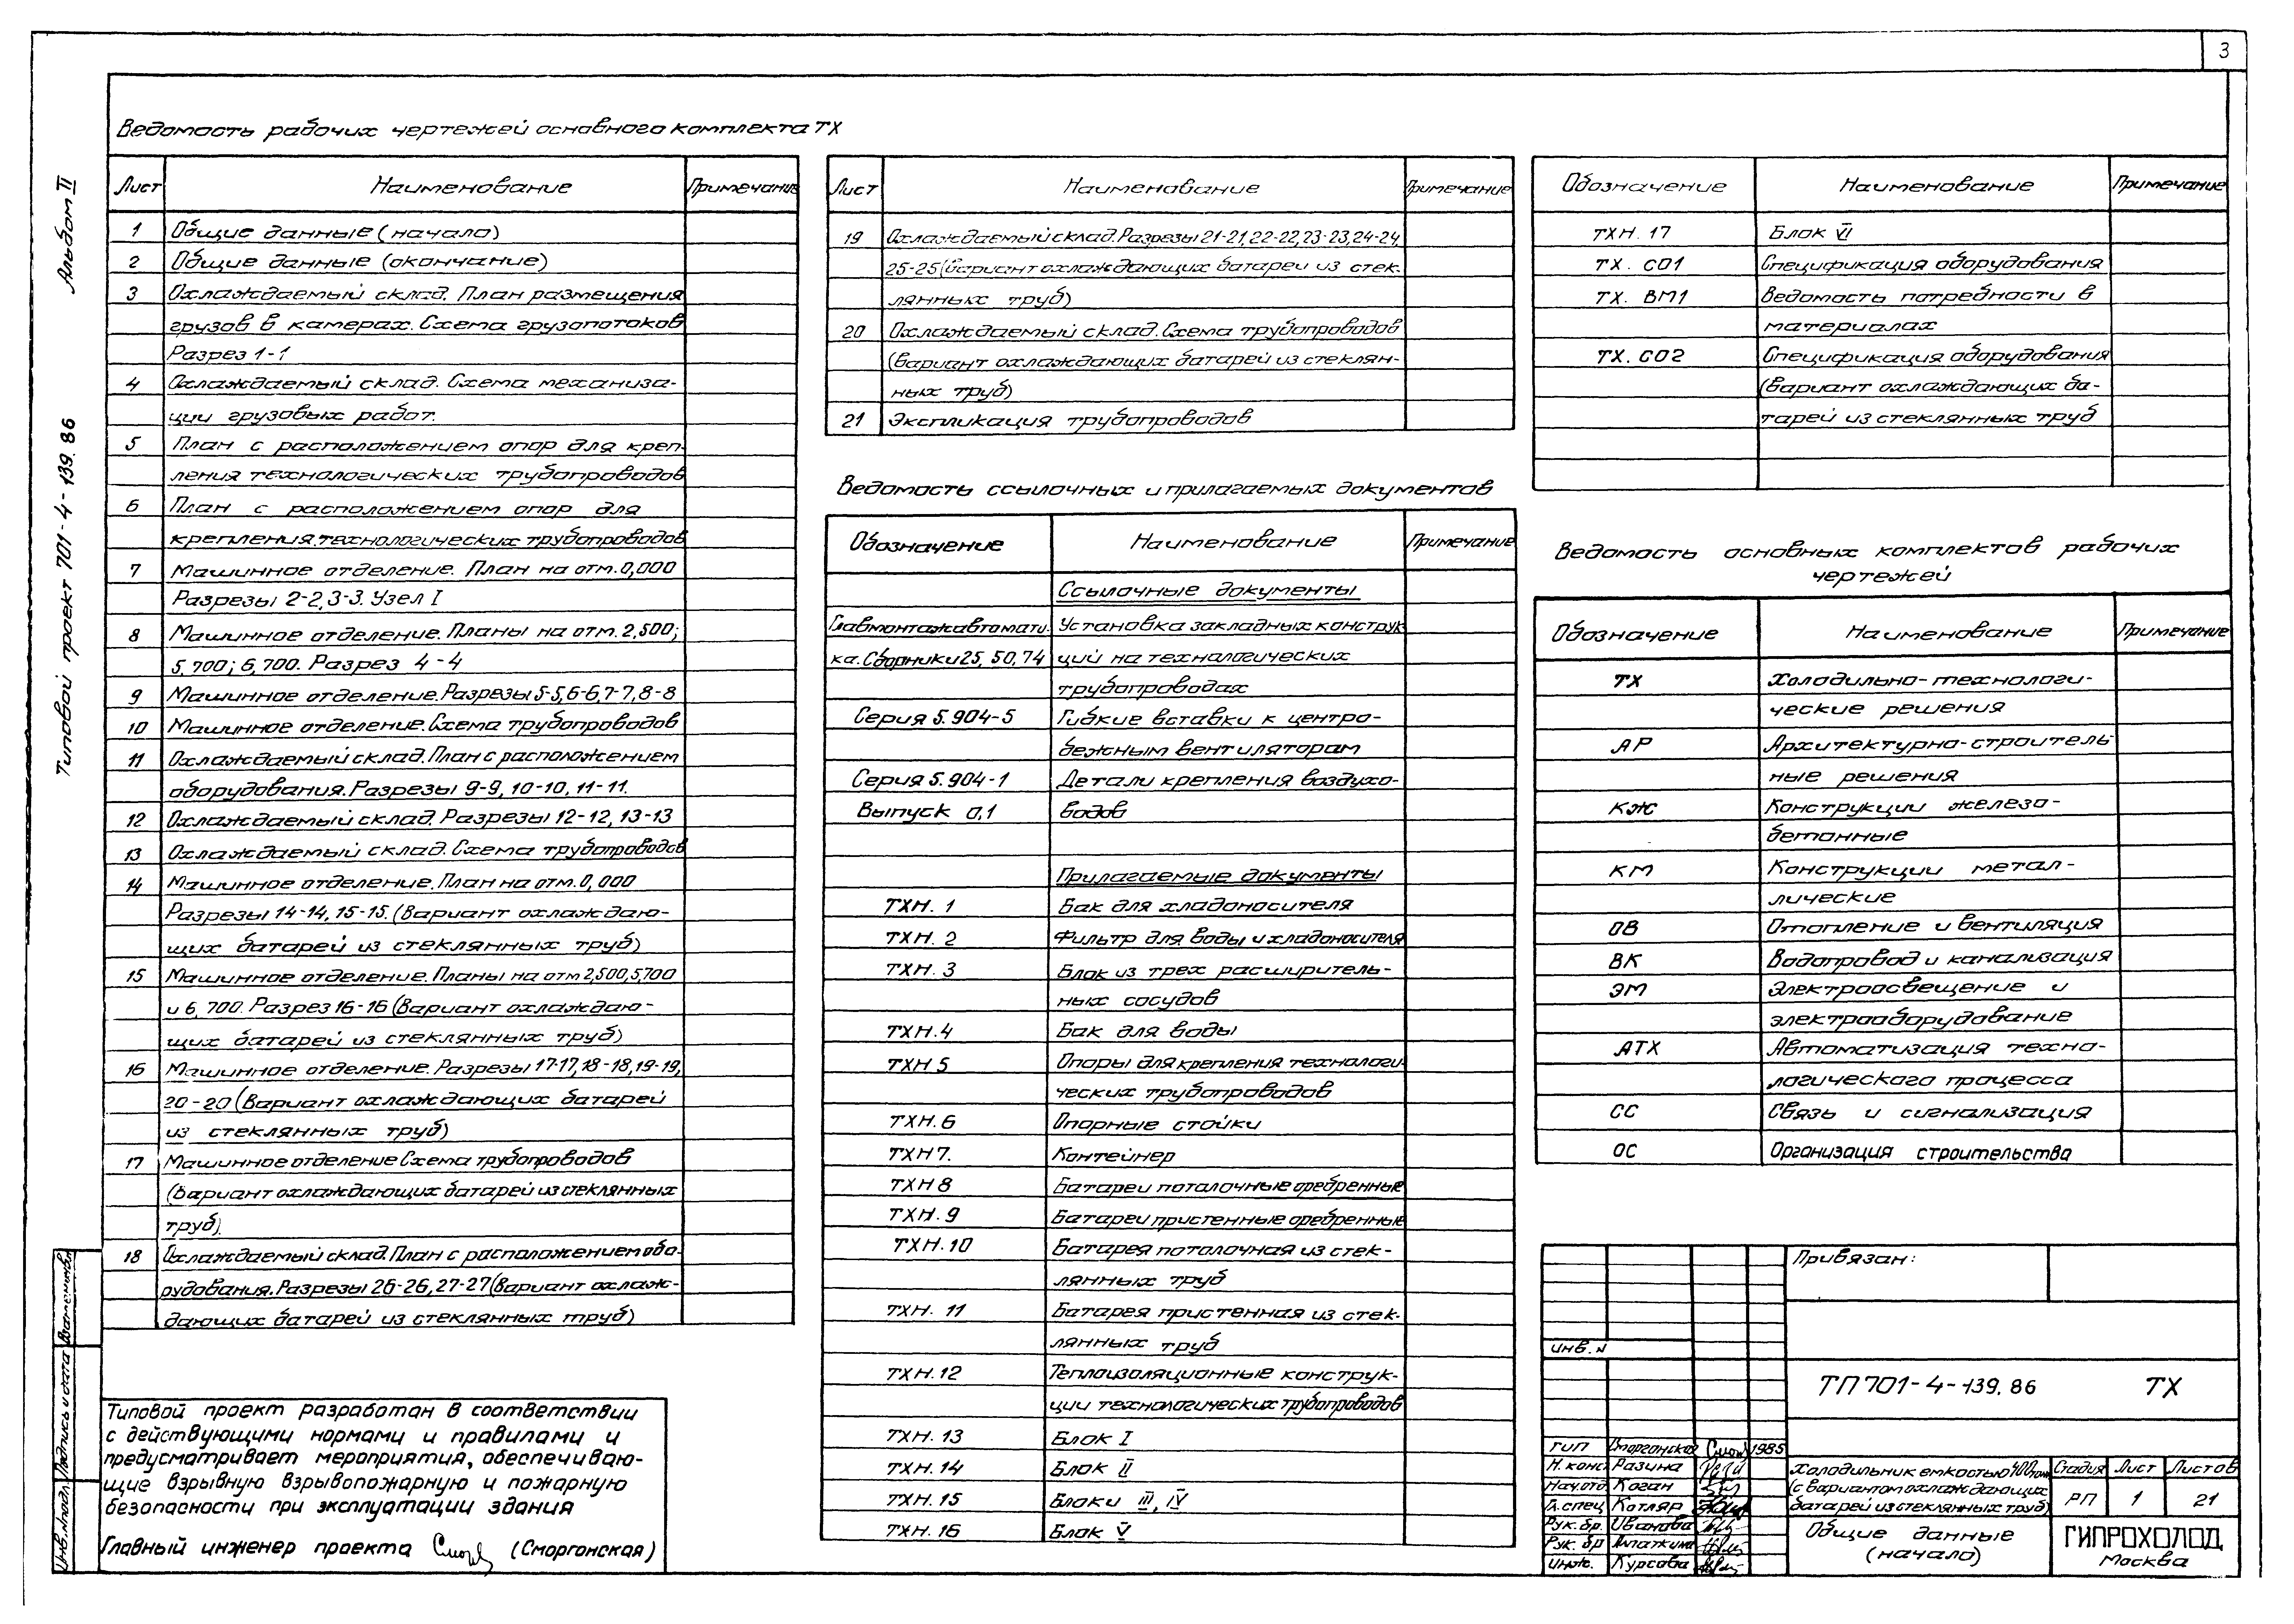 3
Альбом II
Типовой проект 701-4-139.86
Ведомость рабочих чертежей основного комплекта ТХ
Лист Наименование Примечание
1 Общие данные (начало)
2 Общие данные (окончание)
3 Охлаждаемый склад. План размещения
грузов в камерах. Схема грузопотоков
Разрез 1-1
4 Охлаждаемый склад. Схема механиза-
ции грузовых работ.
5 План с расположением опор для креп-
ления технологических трубопроводов
6 План с расположением опор для
крепления технологических трубопроводов
7 Машинное отделение. План на отм. 0,000
Разрезы 2-2, 3-3. Узел I
8 Машинное отделение. Планы на отм. 2,500;
5,700; 6,700. Разрез 4-4
9 Машинное отделение. Разрезы 5-5, 6-6, 7-7, 8-8
10 Машинное отделение. Схема трубопроводов
11 Охлаждаемый склад. План с расположением
оборудования. Разрезы 9-9, 10-10, 11-11.
12 Охлаждаемый склад. Разрезы 12-12, 13-13
13 Охлаждаемый склад. Схема трубопроводов
14 Машинное отделение. План на отм. 0,000
Разрезы 14-14, 15-15. (Вариант охлаждаю-
щих батарей из стеклянных труб)
15 Машинное отделение. Планы на отм 2,500, 5,700
и 6,700. Разрез 16-16 (Вариант охлаждаю-
щих батарей из стеклянных труб)
16 Машинное отделение. Разрезы 17-17, 18-18, 19-19,
20-20 (Вариант охлаждающих батарей
из стеклянных труб)
17 Машинное отделение Схема трубопроводов
(Вариант охлаждающих батарей из стеклянных
труб).
18 Охлаждаемый склад. План с расположением обо-
рудования. Разрезы 26-26, 27-27 (Вариант охлаж-
дающих батарей из стеклянных труб)
Типовой проект разработан в соответствии
с действующими нормами и правилами и
предусматривает мероприятия, обеспечиваю-
щие взрывную взрывопожарную и пожарную
безопасности при эксплуатации здания
Главный инженер проекта (Сморгонская)
Лист Наименование Примечание
19 Охлаждаемый склад. Разрезы 21-21, 22-22, 23-23, 24-24,
25-25 (Вариант охлаждающих батарей из стек-
лянных труб)
20 Охлаждаемый склад. Схема трубопроводов
(Вариант охлаждающих батарей из стеклян-
ных труб)
21 Экспликация трубопроводов
Ведомость ссылочных и прилагаемых документов
Обозначение Наименование Примечание
Ссылочные документы
Главмонтажавтомати- Установка закладных конструк-
ка. Сборники 25, 50, 74 ций на технологических
трубопроводах
Серия 5.904-5 Гибкие вставки к центро-
бежным вентиляторам
Серия 5.904-1 Детали крепления воздухо-
Выпуск 0,1 водов
Прилагаемые документы
ТХН. 1 Бак для хладоносителя
ТХН. 2 Фильтр для воды и хладоносителя
ТХН. 3 Блок из трех расширитель-
ных сосудов
ТХН. 4 Бак для воды
ТХН 5 Опоры для крепления технологи-
ческих трубопроводов
ТХН. 6 Опорные стойки
ТХН 7. Контейнер
ТХН 8 Батареи потолочные оребренные
ТХН. 9 Батареи пристенные оребренные
ТХН. 10 Батарея потолочная из стек-
лянных труб
ТХН. 11 Батарея пристенная из стек-
лянных труб
ТХН. 12 Теплоизоляционные конструк-
ции технологических трубопроводов
ТХН. 13 Блок I
ТХН. 14 Блок II
ТХН. 15 Блоки III, IV
ТХН. 16 Блок V
Обозначение Наименование Примечание
ТХН. 17 Блок VI
ТХ. СО1 Спецификация оборудования
ТХ. ВМ1 Ведомость потребности в
материалах
ТХ. СО2 Спецификация оборудования
(Вариант охлаждающих ба-
тарей из стеклянных труб
Ведомость основных комплектов рабочих
чертежей
Обозначение Наименование Примечание
ТХ Холодильно-технологи-
ческие решения
АР Архитектурно-строитель-
ные решения
КЖ Конструкции железо-
бетонные
КМ Конструкции метал-
лические
ОВ Отопление и вентиляция
ВК Водопровод и канализация
ЭМ Электроосвещение и
электрооборудование
АТХ Автоматизация техно-
логического процесса
СС Связь и сигнализация
ОС Организация строительства
Привязан:
Инв. N
ТП 701-4-139.86 ТХ
ГИП Сморгонская 1985
Н. конс Разина
Нач.отд Коган
Гл. спец Котляр
Рук. бр. Иванова
Рук. бр
Инж. Курсова
Холодильник емкостью 400 тонн
(с вариантом охлаждающих
батарей из стеклянных труб)
Стадия Лист Листов
РП 1 21
Общие данные
(начало)
ГИПРОХОЛОД
Москва
Взам.инв.N
Подпись и дата
Инв.N подл.